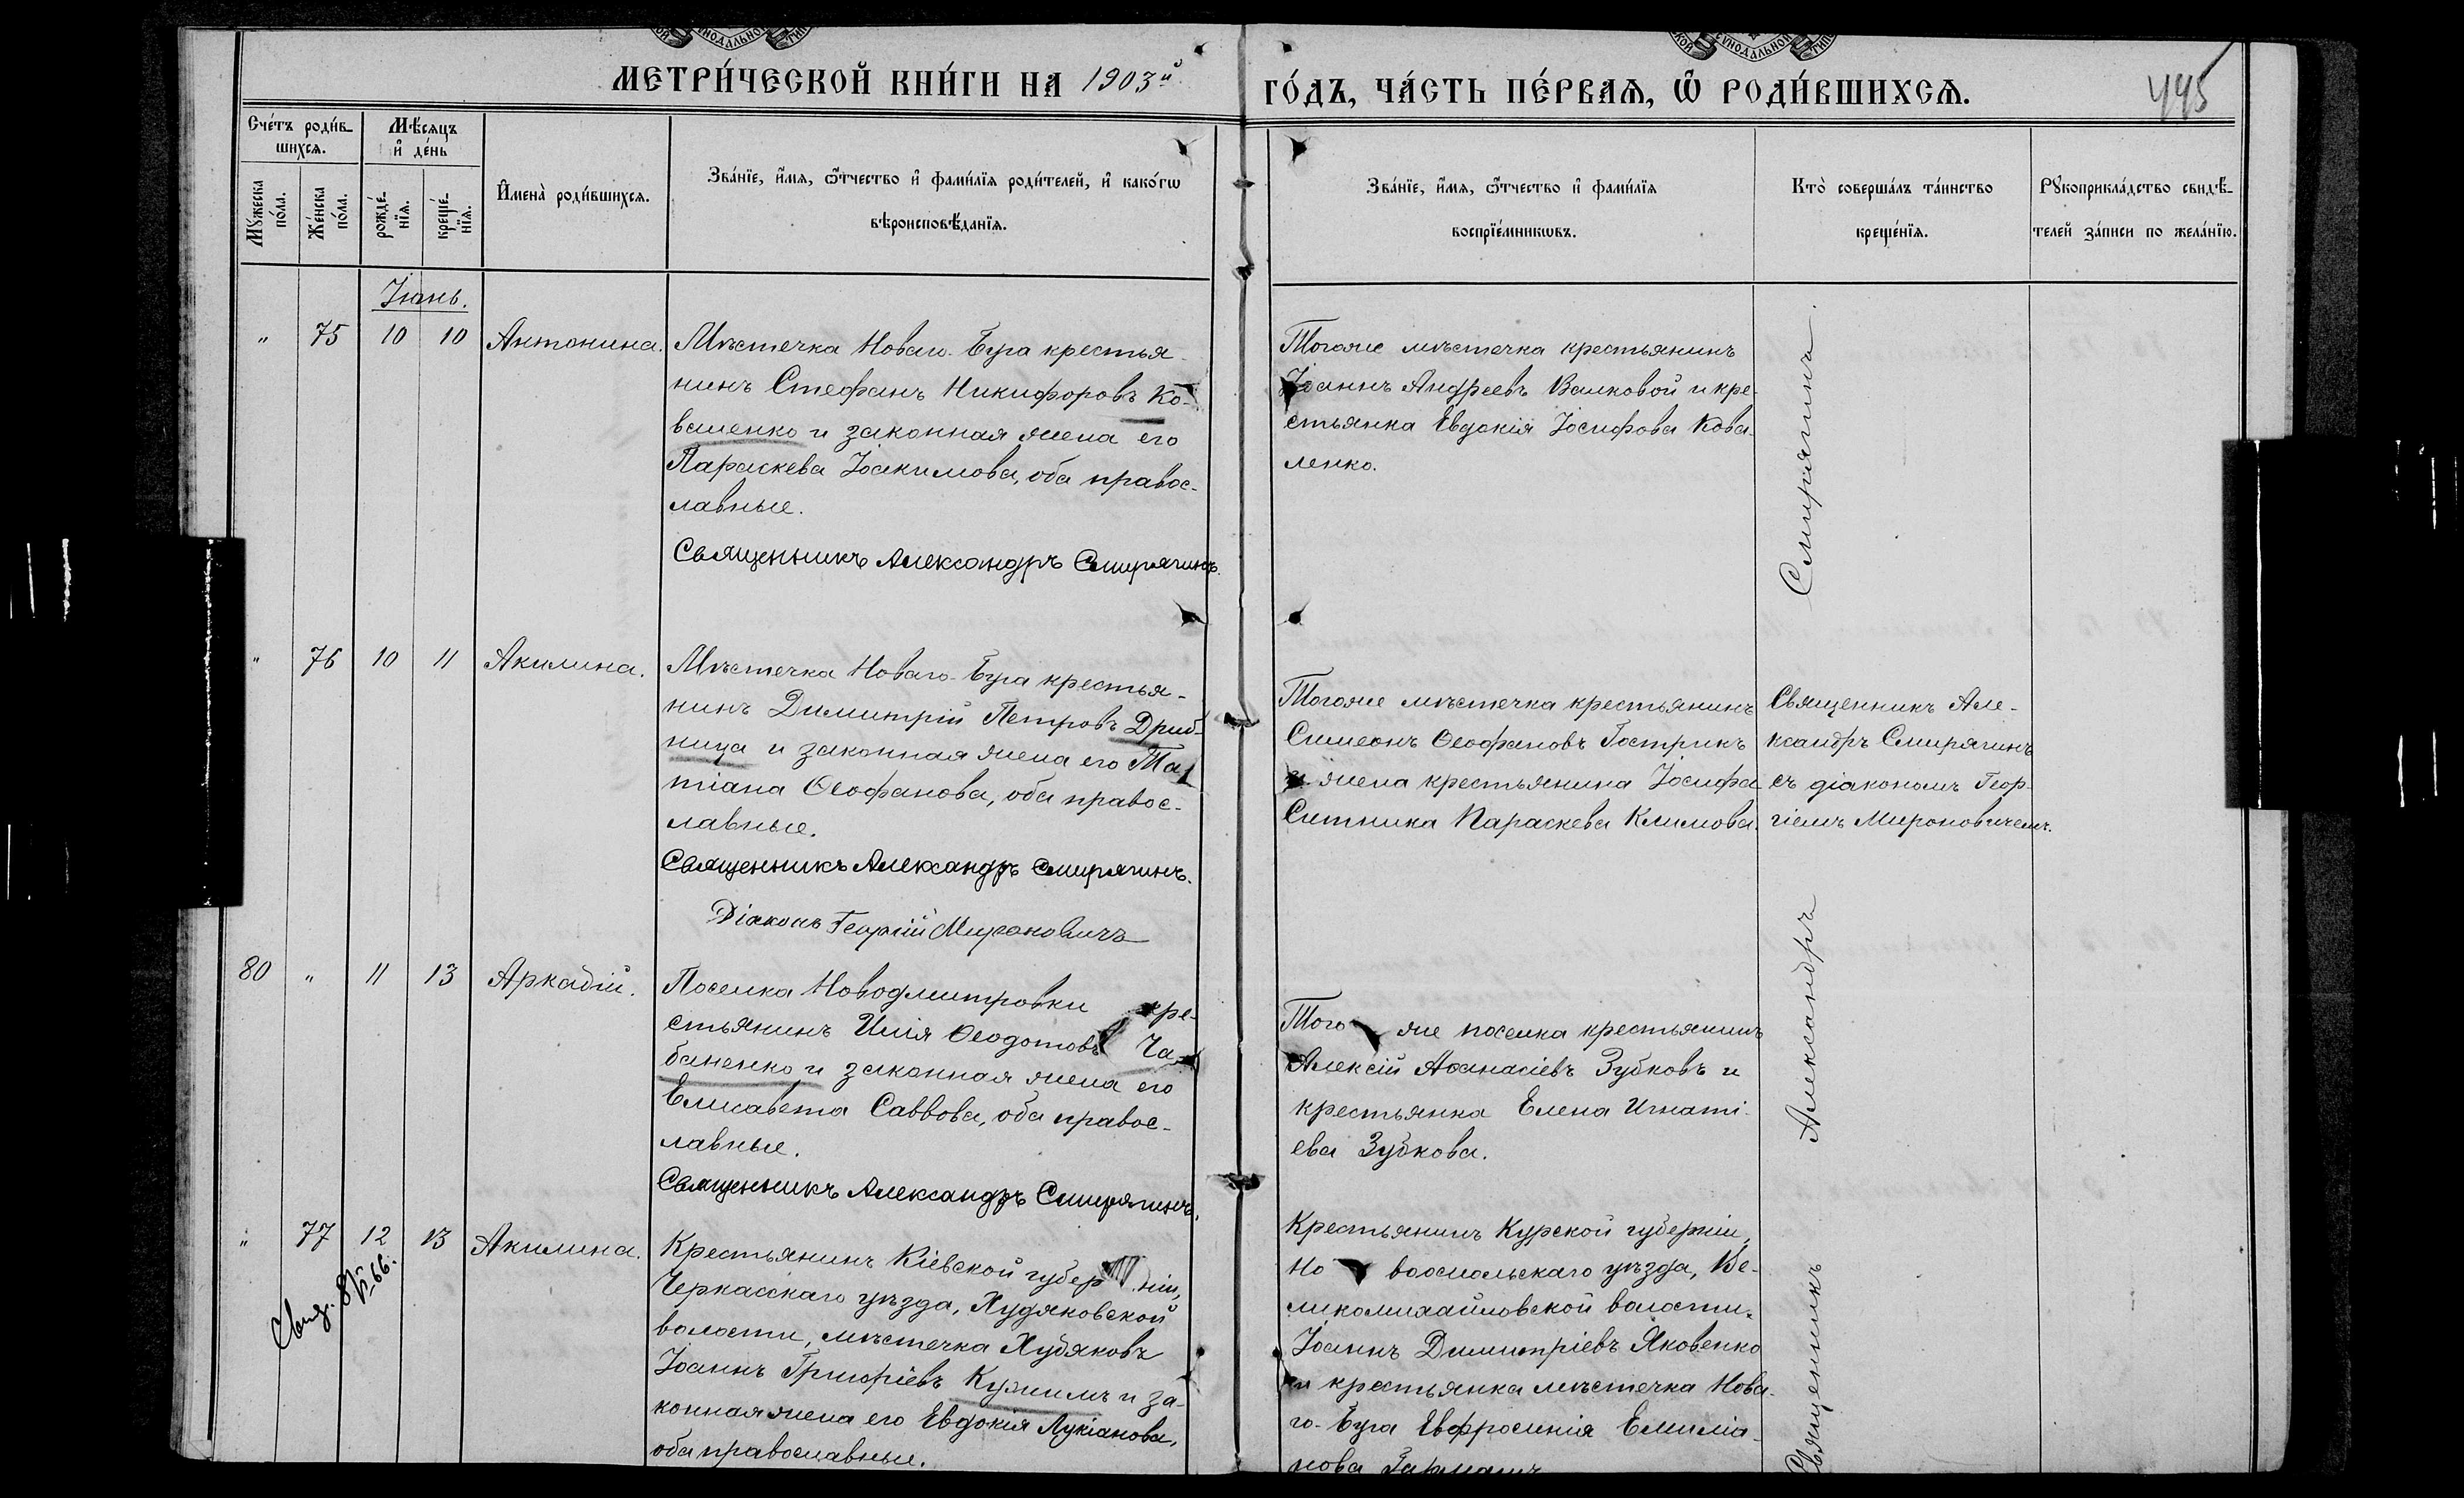 МЕТРИ́ЧЕСКОЙ КНИ́ГИ НА 1903й
ГО́ДЪ, ЧА́СТЬ ПЕ́РВАѦ, Ѡ҆ РОДИ́ВШИХСѦ.
445
Сче́тъ роди́в-
шихсѧ.
Мѣ́сѧцъ
и҆ де́нь
Мꙋ́жеска
по́ла.
Же́нска
по́ла.
рожде́-
нїѧ.
креще́-
нїѧ.
И҆мена̀ роди́вшихсѧ.
Зва́нїе, и҆́мѧ, ѻ҆́тчество и҆ фами́лїѧ роди́телей, и҆ како́гѡ
вѣроисповѣ́данїѧ.
Зва́нїе, и҆́мѧ, ѻ҆́тчество и҆ фами́лїѧ
воспрїе́мникѡвъ.
Кто̀ соверша́лъ та́инство
креще́нїѧ.
Рꙋкоприкла́дство свидѣ́-
телей за́писи по жела́нїю.
Іюнь.
" 75 10 10 Антонина.
Мѣстечка Новаго-Буга крестья-
нинъ Стефанъ Никифоровъ Ко-
валенко и законная жена его
Параскева Іоакимова, оба правос-
лавные.
Священникъ Александръ Смирягинъ.
Тогоже мѣстечка крестьянинъ
Іоаннъ Андреевъ Валковой и кре-
стьянка Евдокія Іосифова Кова-
ленко.
" 76 10 11 Акилина.
Мѣстечка Новаго-Буга крестья-
нинъ Димитрій Петровъ Дриб-
ница и законная жена его Та-
тіана Ѳеофанова, оба правос-
лавные.
Священникъ Александръ Смирягинъ.
Діаконъ Георгій Мироновичъ
Тогоже мѣстечка крестьянинъ
Симеонъ Ѳеофановъ Гострикъ
и жена крестьянина Іосифа
Ситника Параскева Климова.
Священникъ Але-
ксандръ Смирягинъ
съ діакономъ Геор-
гіемъ Мироновичемъ.
80 " 11 13 Аркадій.
Поселка Новодмитровки кре-
стьянинъ Илія Ѳеодотовъ Ча-
баненко и законная жена его
Елисавета Саввова, оба правос-
лавные.
Священникъ Александръ Смирягинъ.
Того же поселка крестьянинъ
Алексій Аѳанасіевъ Зубковъ и
крестьянка Елена Игнаті-
ева Зубкова.
" 77 12 13 Акилина.
Свид. 8/VI 66.
Крестьянинъ Кіевской губерніи,
Черкасскаго уѣзда, Худяковской
волости, мѣстечка Худяковъ
Іоаннъ Григоріевъ Кужимъ и за-
конная жена его Евдокія Лукіанова,
оба православные.
Крестьянинъ Курской губерніи,
Но воосколькаго уѣзда, Ве-
ликомихайловской волости,
Іоаннъ Димитріевъ Яковенко
и крестьянка мѣстечка Нова-
го-Буга Евфросинія Емиліа-
нова
Священникъ Александръ Смирягинъ.